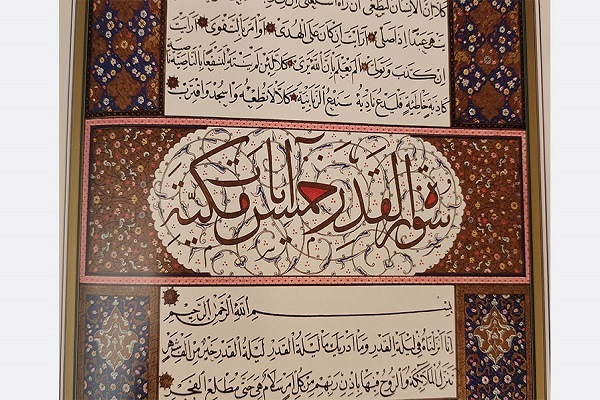 كلا ان الانسان ليطغى ان راه استغنى ان الى
ينهى عبدا اذا صلى ارايت ان كان على الهدى او امر بالتقوى ارايت
ان كذب وتولى الم يعلم بان الله يرى كلا لئن لم ينته لنسفعا بالناصية ناصية
كاذبة خاطئة فليدع ناديه سندع الزبانية كلا لا تطعه واسجد واقترب
سورة القدر خمس آيات مكية
بسم الله الرحمن الرحيم
انا انزلناه في ليلة القدر وما ادريك ما ليلة القدر ليلة القدر خير من الف شهر
تنزل الملئكة والروح فيها باذن ربهم من كل امر سلام هي حتى مطلع الفجر